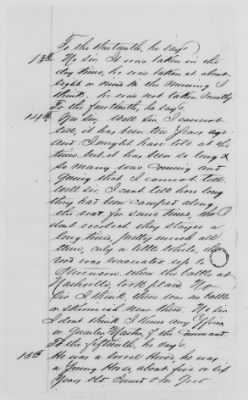 To the thirteenth, he says
13th No Sir, It was taken in the
day time, he was taken at about
Eight or Nine in the morning I
think. he was not taken secretly
To the fourteenth, he says
14th Yes Sir, Well Sir I cannot
tell, it has been ten years ago
and I might have told at the
time, but it has been so long &
so many were coming and
going that I cannot tell
well sir, I can't tell how long
they had been camped along
the road for some time, they
dont stay a
long time, pretty much all
time, only a little while, the
road was up to
when the battle at
Nashville took place No
Sir I think, there was no battle
or skirmish near there. No Sir
I dont think I knew any Officer
or Quarter Master of the command
To the fifteenth, he says
15th He was a Sorrel Horse, he was
a Young Horse, about five or six
Years old